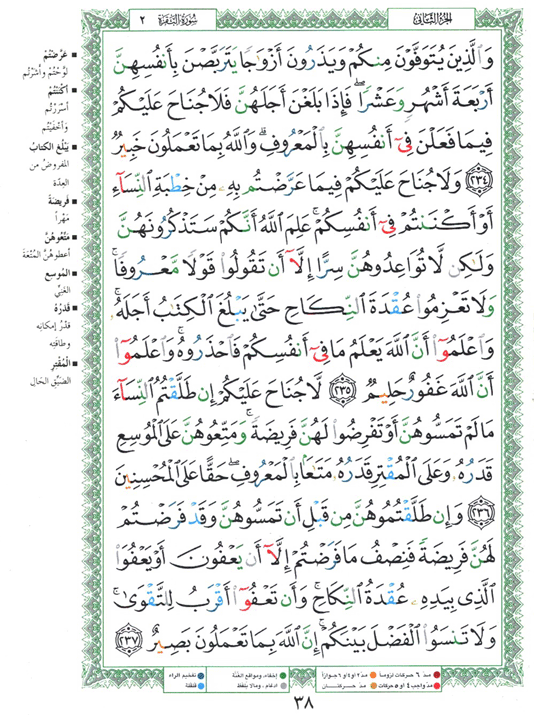 الجزء الثاني
سورة البقرة ٢
وَالَّذِينَ يُتَوَفَّوْنَ مِنكُمْ وَيَذَرُونَ أَزْوَاجًا يَتَرَبَّصْنَ بِأَنفُسِهِنَّ
أَرْبَعَةَ أَشْهُرٍ وَعَشْرًا ۖ فَإِذَا بَلَغْنَ أَجَلَهُنَّ فَلَا جُنَاحَ عَلَيْكُمْ
فِيمَا فَعَلْنَ فِىٓ أَنفُسِهِنَّ بِالْمَعْرُوفِ ۗ وَاللَّهُ بِمَا تَعْمَلُونَ خَبِيرٌ
٢٣٤ وَلَا جُنَاحَ عَلَيْكُمْ فِيمَا عَرَّضْتُم بِهِۦ مِنْ خِطْبَةِ النِّسَآءِ
أَوْ أَكْنَنتُمْ فِىٓ أَنفُسِكُمْ ۚ عَلِمَ اللَّهُ أَنَّكُمْ سَتَذْكُرُونَهُنَّ
وَلَٰكِن لَّا تُوَاعِدُوهُنَّ سِرًّا إِلَّآ أَن تَقُولُوا قَوْلًا مَّعْرُوفًا ۚ
وَلَا تَعْزِمُوا عُقْدَةَ النِّكَاحِ حَتَّىٰ يَبْلُغَ الْكِتَٰبُ أَجَلَهُۥ ۚ
وَاعْلَمُوٓا أَنَّ اللَّهَ يَعْلَمُ مَا فِىٓ أَنفُسِكُمْ فَاحْذَرُوهُ ۚ وَاعْلَمُوٓا
أَنَّ اللَّهَ غَفُورٌ حَلِيمٌ ٢٣٥ لَّا جُنَاحَ عَلَيْكُمْ إِن طَلَّقْتُمُ النِّسَآءَ
مَا لَمْ تَمَسُّوهُنَّ أَوْ تَفْرِضُوا لَهُنَّ فَرِيضَةً ۚ وَمَتِّعُوهُنَّ عَلَى الْمُوسِعِ
قَدَرُهُۥ وَعَلَى الْمُقْتِرِ قَدَرُهُۥ مَتَٰعًۢا بِالْمَعْرُوفِ ۖ حَقًّا عَلَى الْمُحْسِنِينَ
٢٣٦ وَإِن طَلَّقْتُمُوهُنَّ مِن قَبْلِ أَن تَمَسُّوهُنَّ وَقَدْ فَرَضْتُمْ
لَهُنَّ فَرِيضَةً فَنِصْفُ مَا فَرَضْتُمْ إِلَّآ أَن يَعْفُونَ أَوْ يَعْفُوَا
الَّذِى بِيَدِهِۦ عُقْدَةُ النِّكَاحِ ۚ وَأَن تَعْفُوٓا أَقْرَبُ لِلتَّقْوَىٰ ۚ
وَلَا تَنسَوُا الْفَضْلَ بَيْنَكُمْ ۚ إِنَّ اللَّهَ بِمَا تَعْمَلُونَ بَصِيرٌ ٢٣٧
■ عَرَّضْتُمْ
لوّحتم وأشرتم
■ أَكْنَنتُمْ
أسررتم
وأخفيتم
■ يَبْلُغَ الكتابُ
المفروض من
العدّة
■ فَرِيضَةً
مَهْراً
■ مَتِّعُوهُنَّ
أعطوهنّ المتعة
■ المُوسِعِ
الغنيّ
■ قَدَرُهُ
قدْر إمكانه
وطاقته
■ المُقْتِرِ
الضيّق الحال
مدّ ٦ حركات لزوماً مدّ ٢ أو ٤ أو ٦ جوازاً إخفاء، ومواقع الغُنّة تفخيم الراء
مدّ واجب ٤ أو ٥ حركات مدّ حركتان إدغام، وما لا يُلفظ قلقلة
٣٨